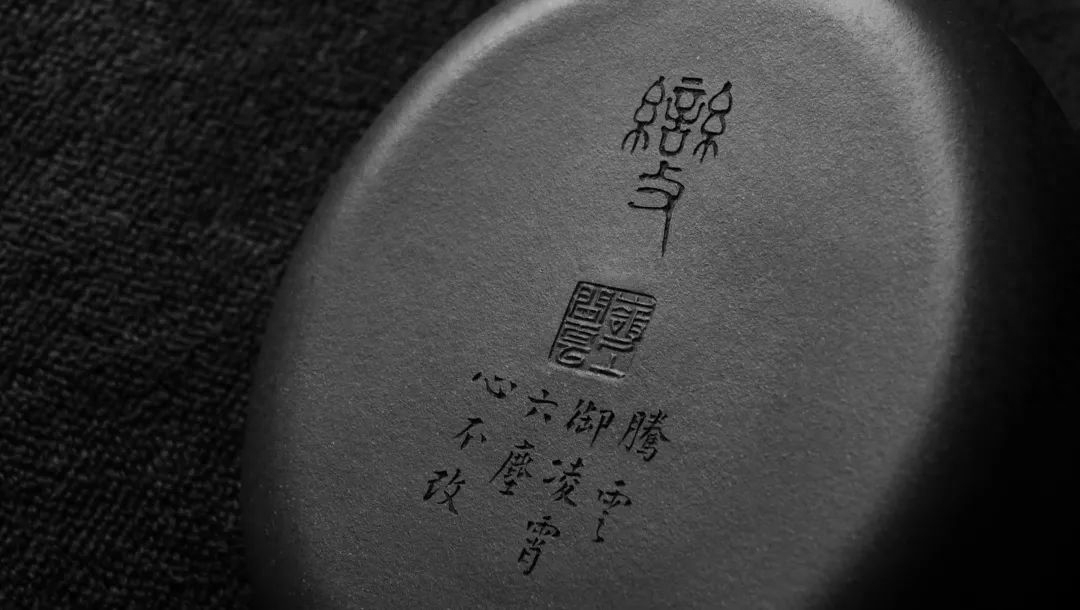 變
騰雲
御凌霄
六塵
心不改